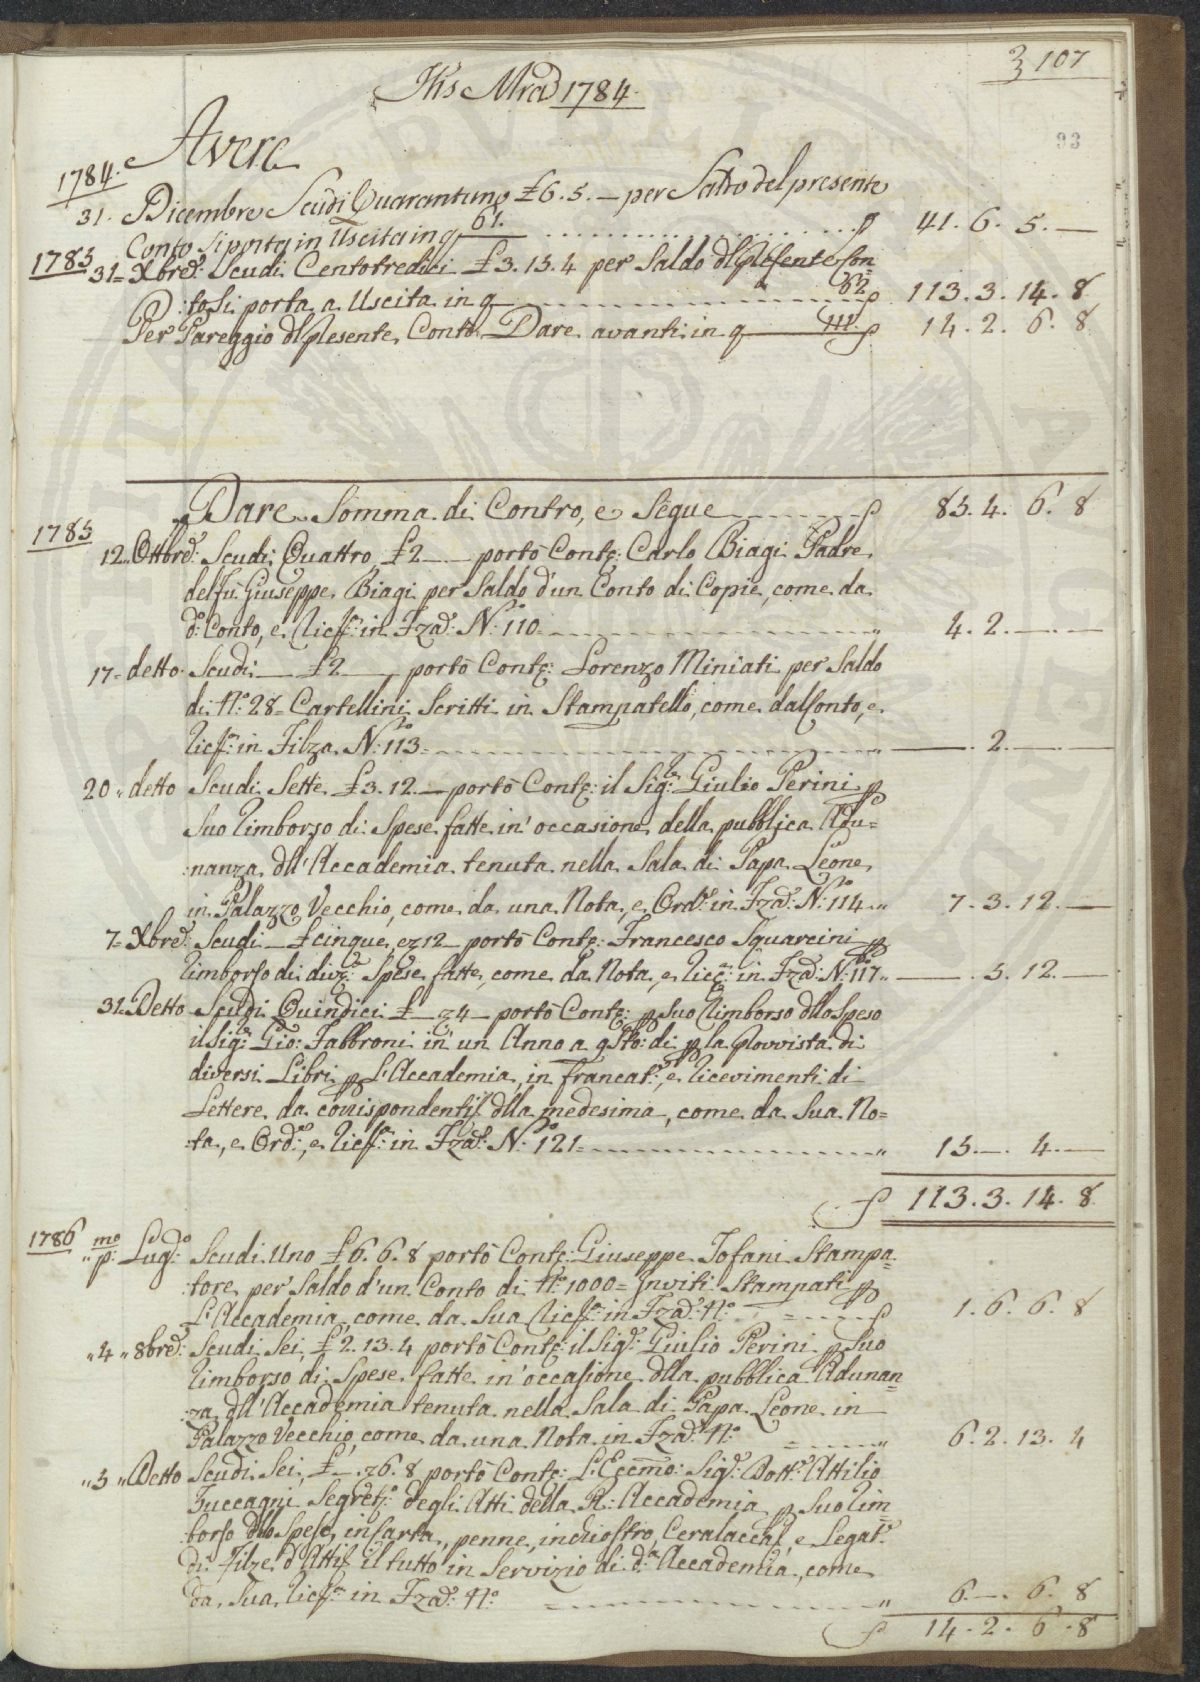 3 107
Jhs Mra 1784.
93
Avere
1784.
31. Dicembre Scudi Quarantuno £ 6. 5. — per Saldo del presente
Conto si porta in Uscita in q 61. 41. 6. 5. —
1785 31= Xbre: Scudi Centotredici £ 3. 13. 4 per Saldo dl plesente Con=
:to si porta a Uscita in q 62 113. 3. 14. 8
Per Pareggio dl plesente Conto Dare avanti in q 111. 14. 2. 6. 8
Dare Somma di Contro, e Segue 85. 4. 6. 8
1785
12.. Ottbre: Scudi Quattro £ 2 — portò Conte: Carlo Biagi Padre
del fù Giuseppe Biagi per Saldo d'un Conto di Copie, come da
do: Conto, e Ricta: in Fza: No: 110 4. 2. — . —
17= detto Scudi — £ 2 — portò Conte: Lorenzo Miniati per Saldo
di No: 28= Cartellini Scritti in Stampatello, come dal Conto, e
Ricta: in Filza No: 113= — . 2. — . —
20.. detto Scudi Sette £ 3. 12. — portò Conte: il Sigr: Giulio Perini p
Suo Rimborso di Spese fatte in occasione della pubblica Adu=
:nanza dll'Accademia tenuta nella Sala di Papa Leone
in Palazzo Vecchio, come da una Nota, e Ord: in Fza: No: 114.. 7. 3. 12. —
7= Xbre: Scudi — £ cinque, e 12 — portò Conte: Francesco Squarcini p
Rimborso di dive: Spese fatte, come da Nota, e Ricc: in Fza: No: 117.. — . 5. 12. —
31. Detto Scudi Quindici £ — 4 — portò Conte: p Suo Rimborso dlle Spese
il Sigr: Gio: Fabbroni in un Anno a qsto: di p la Provvista di
diversi Libri p L'Accademia, in francat:, e ricevimenti di
Lettere da corrispondenti dlla medesima, come da Sua No=
:ta, e Ord:, e Ricta: in Fza: No: 121= 15. —. 4. —
113. 3. 14. 8
1786 pmo: Lugo: Scudi Uno £ 6. 6. 8 portò Conte: Giuseppe Tofani Stampa=
:tore, per Saldo d'un Conto di No: 1000= Inviti Stampati p
L'Accademia, come da Sua Ricta: in Fza: No: 1. 6. 6. 8
..4.. 8bre: Scudi Sei, £ 2. 13. 4 portò Conte: il Sigr: Giulio Perini p Suo
Rimborso di Spese fatte in occasione dlla pubblica Adunan=
:za dll'Accademia tenuta nella Sala di Papa Leone in
Palazzo Vecchio, come da una Nota in Fza: No: 6. 2. 13. 4
..5.. Detto Scudi Sei, £ —. 6. 8 portò Conte: L'Eccmo: Sigr: Dottr: Attilio
Zuccagni Segreto: degli Atti della R: Accademia p Suo Rim=
:borso dlle Spese, in Carta, penne, inchiostro, Ceralacca, e Legat:
di Filze d'Atti il tutto in Servizio di da: Accademia, come
da Sua Ricta: in Fza: No: 6. —. 6. 8
14. 2. 6. 8